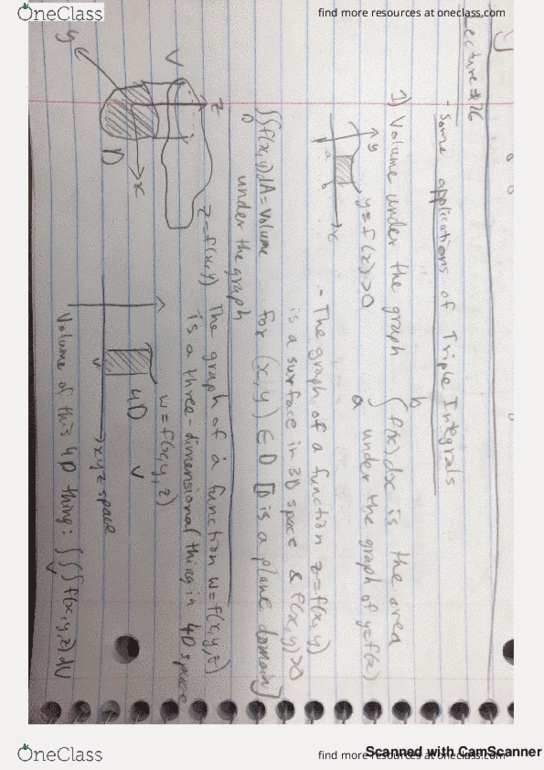 OneClass
find more resources at oneclass.com
Lecture #26
- Some applications of Triple Integrals
1) Volume under the graph
y
y=f(x)>0
a
b
x
b
∫ f(x)dx is the area
a
under the graph of y=f(x)
- The graph of a function z=f(x,y)
is a surface in 3D space & f(x,y)>0
for (x,y) ∈ D [D is a plane domain]
∬f(x,y)dA = Volume
D
under the graph
z
z=f(x,y)
V
x
D
y
The graph of a function w=f(x,y,z)
is a three-dimensional thing in 4D space
w=f(x,y,z)
4D
V
V
xyz space
Volume of this 4D thing: ∭f(x,y,z)dV
V
OneClass
find more resources at oneclass.com
Scanned with CamScanner